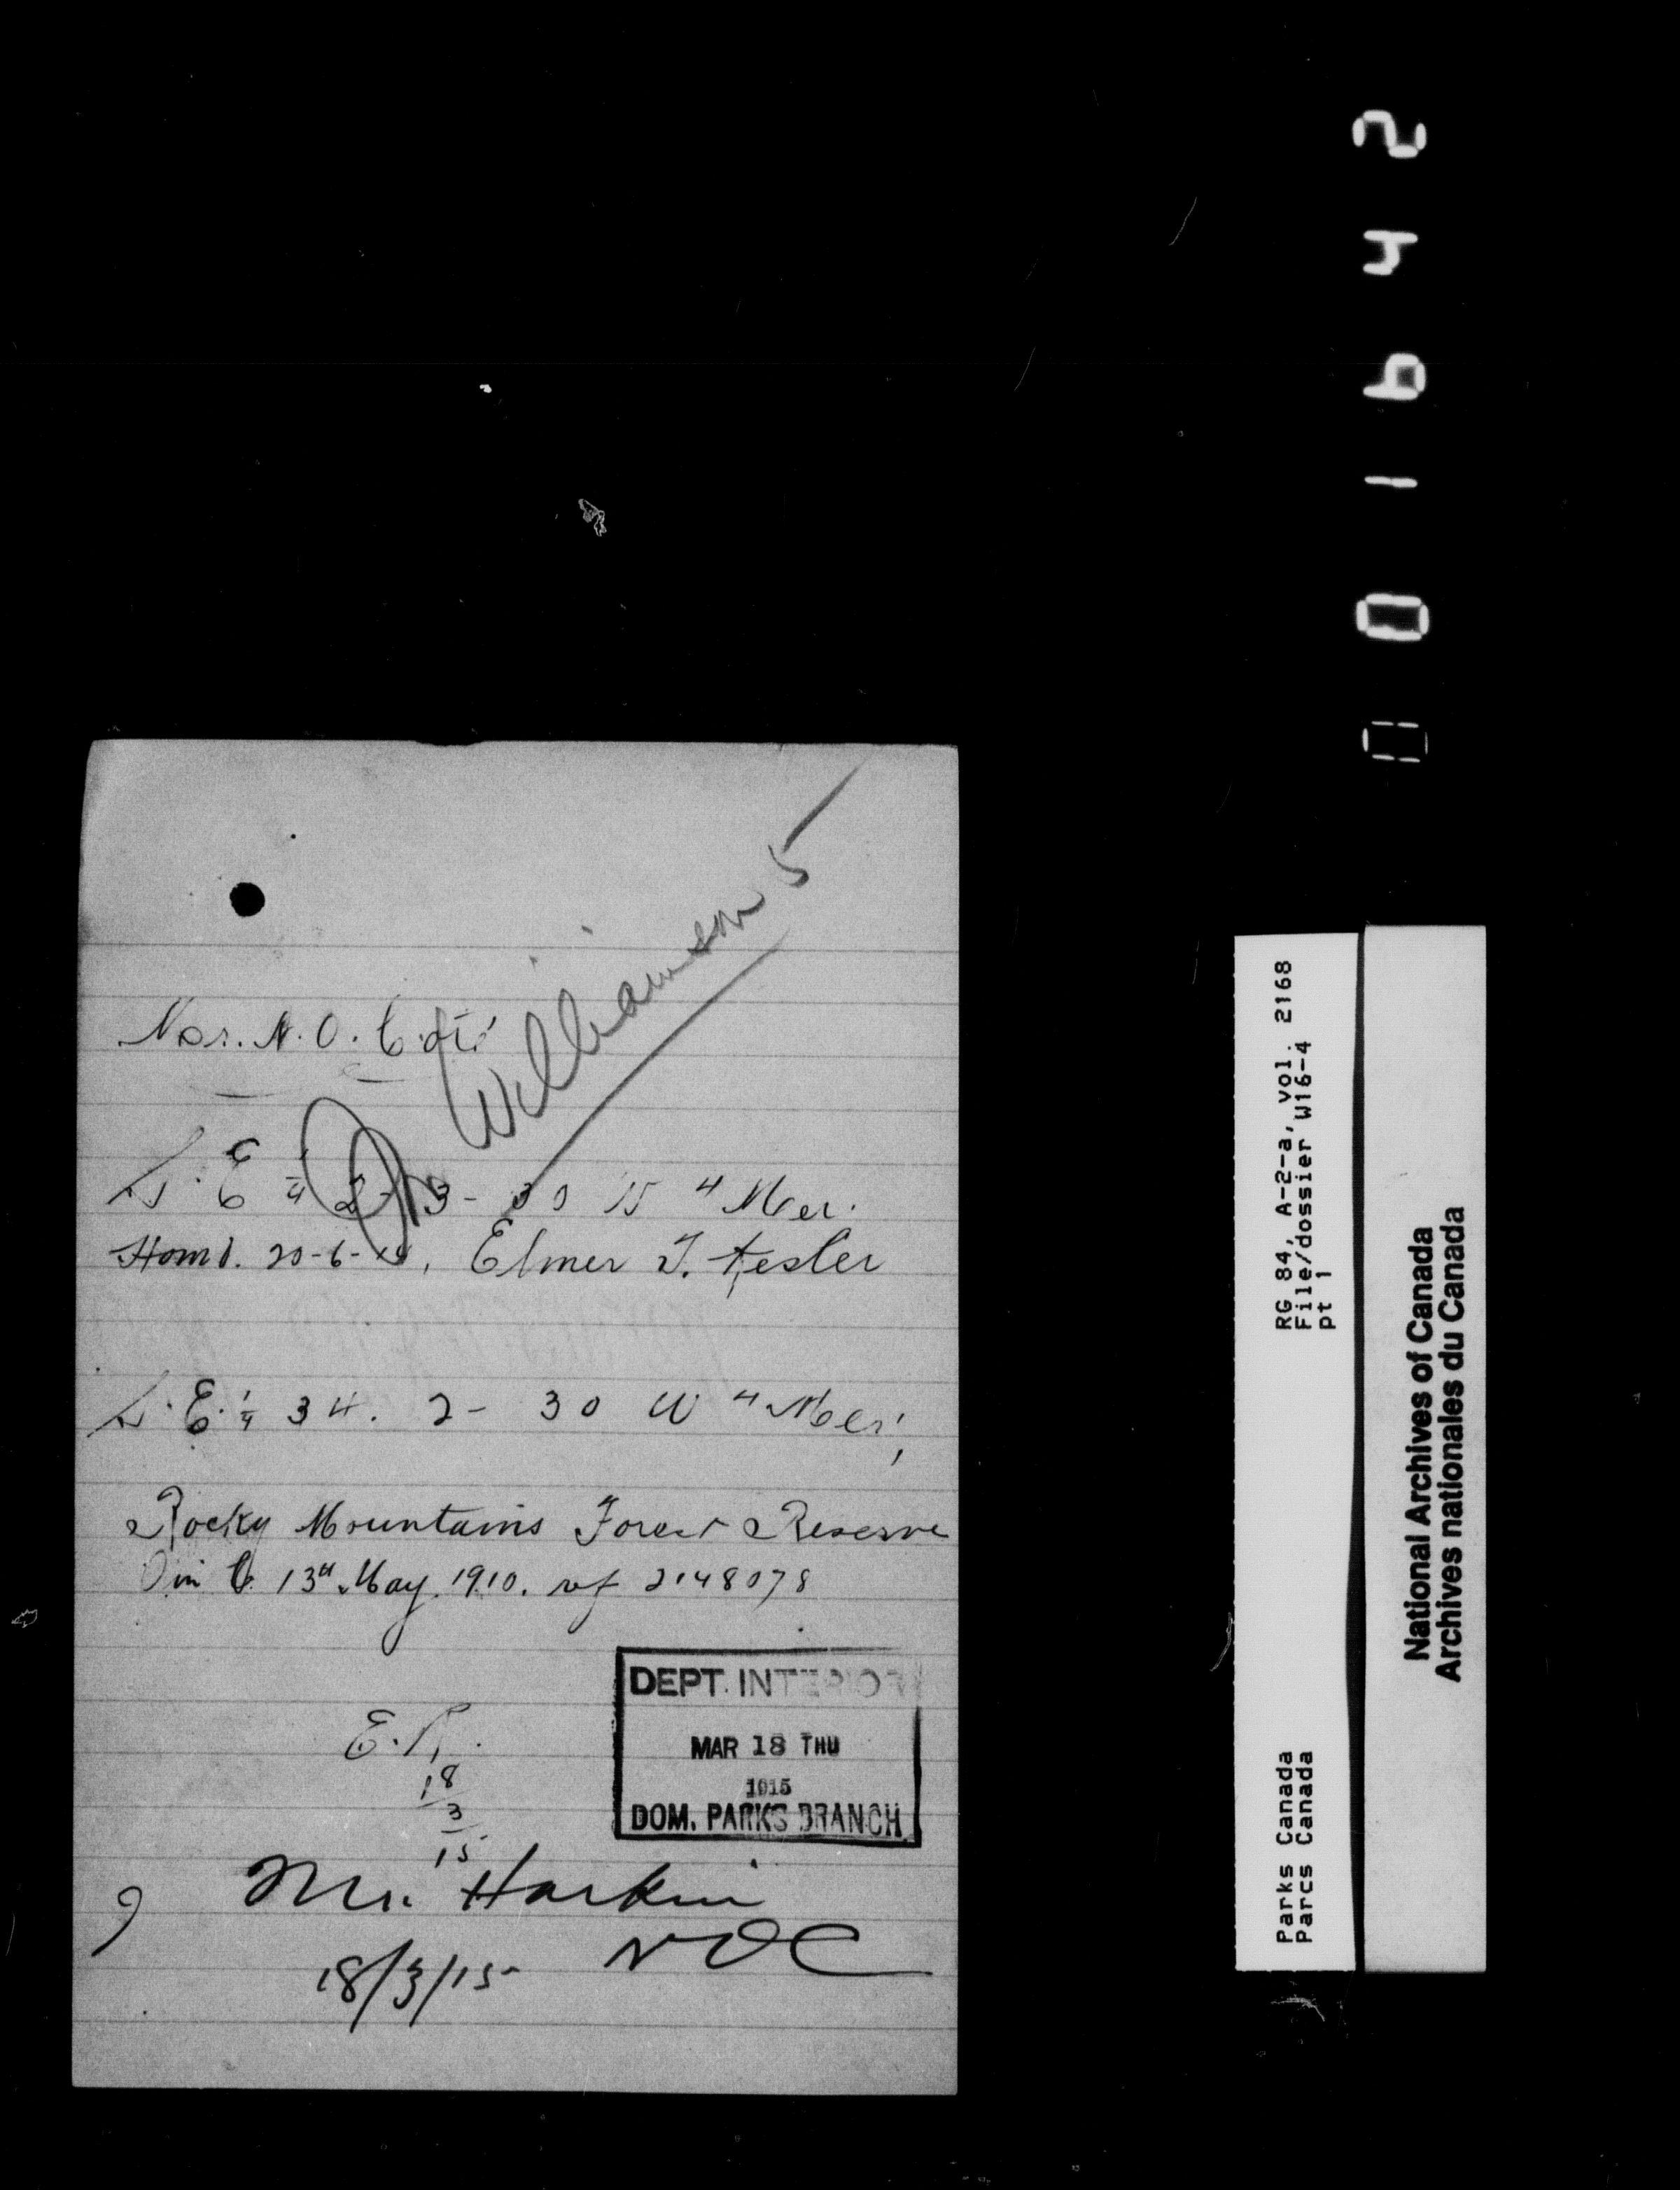 Mr. N. O. Coté
Williamson 5
S. E ¼ 2-3-30 W 4 Mer.
Homd. 20-6-, Elmer T. Tester
S. E. ¼ 34. 2- 30 W 4 Mer;
Rocky Mountains Forest Reserve
O in C. 13th May. 1910. ref 2148078
DEPT. INTERIOR
MAR 18 THU
1915
DOM. PARKS BRANCH
E.R.
18
3
15
Mr. Harkin
NOC
18/3/15
001642
RG 84, A-2-a, vol. 2168
File/dossier W16-4
pt 1
Parks Canada
Parcs Canada
National Archives of Canada
Archives nationales du Canada